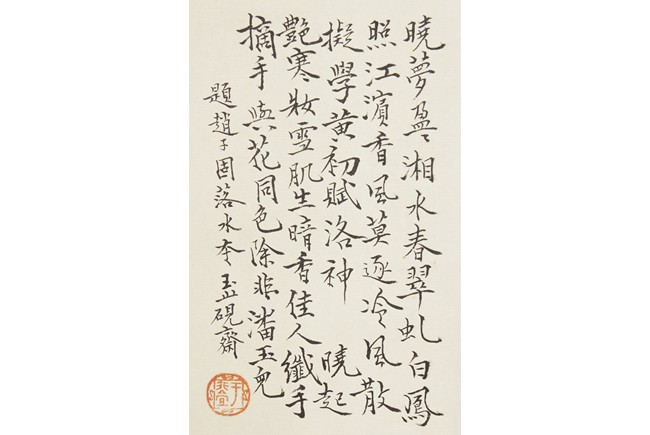 曉夢盈〻湘水春翠虬白鳳
照江濱香風莫逐冷風散
擬學黃初賦洛神　曉起
艷寒妝雪肌生暗香佳人纖手
摘手與花同色除非潘玉兒
題趙子固落水硯齋